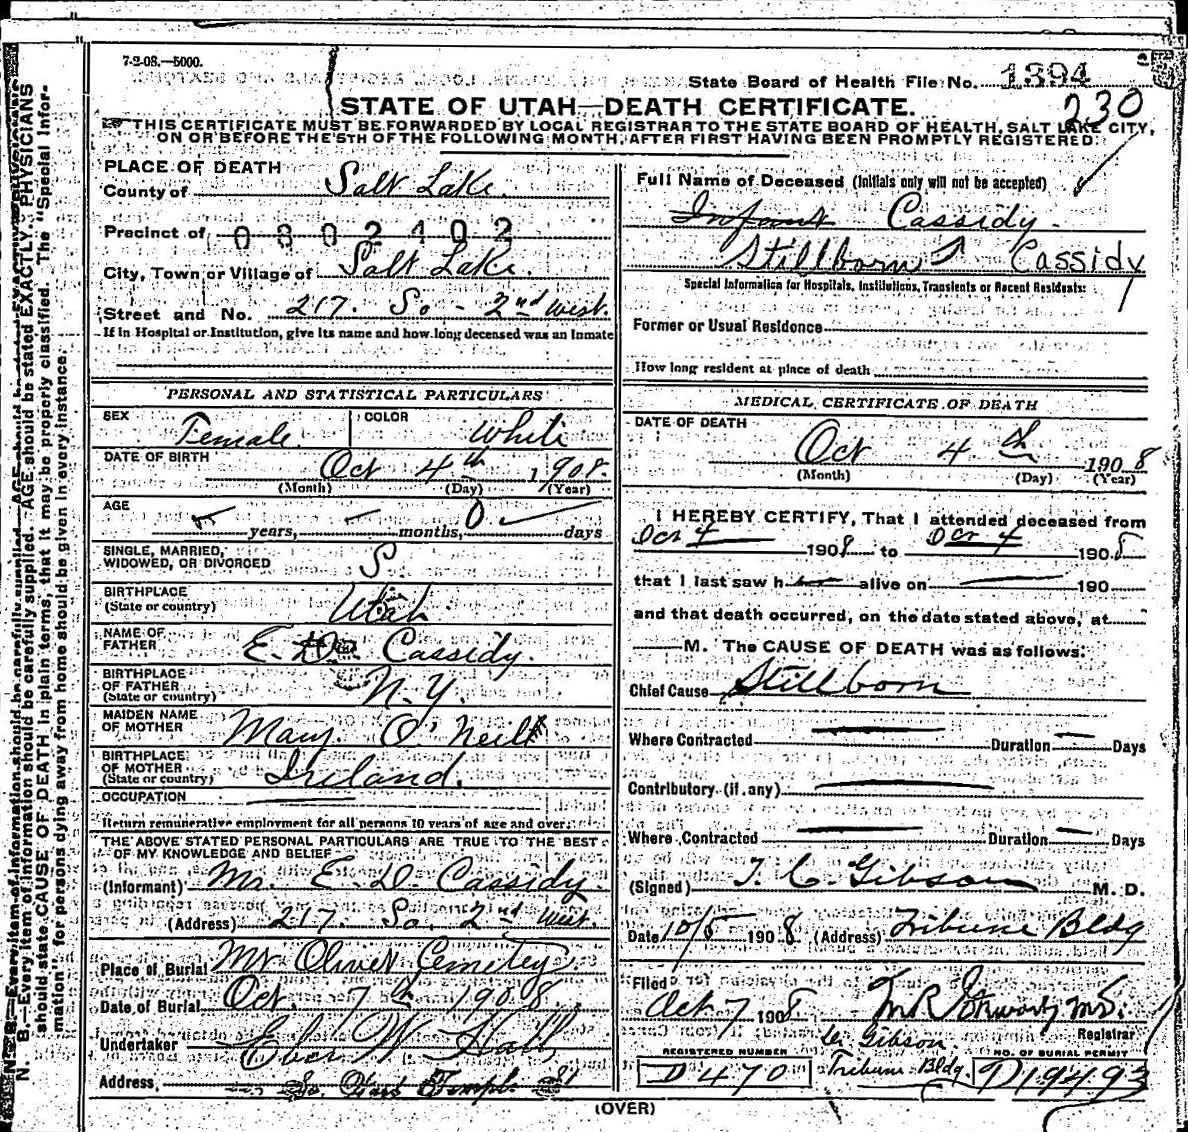 7-2-08.—5000.
State Board of Health File No. 1394
230
STATE OF UTAH—DEATH CERTIFICATE.
THIS CERTIFICATE MUST BE FORWARDED BY LOCAL REGISTRAR TO THE STATE BOARD OF HEALTH, SALT LAKE CITY,
ON OR BEFORE THE 5TH OF THE FOLLOWING MONTH, AFTER FIRST HAVING BEEN PROMPTLY REGISTERED.
PLACE OF DEATH
County of Salt Lake.
Precinct of 0302402
City, Town or Village of Salt Lake.
Street and No. 217. So - 2nd West.
If in Hospital or Institution, give its name and how long deceased was an inmate
PERSONAL AND STATISTICAL PARTICULARS
SEX Female. COLOR White
DATE OF BIRTH Oct 4th 1908.
(Month) (Day) (Year)
AGE years, months, 0 days
SINGLE, MARRIED,
WIDOWED, OR DIVORCED S.
BIRTHPLACE
(State or country) Utah
NAME OF
FATHER E. D. Cassidy.
BIRTHPLACE
OF FATHER
(State or country) N.Y.
MAIDEN NAME
OF MOTHER Mary O'Neil
BIRTHPLACE
OF MOTHER
(State or country) Ireland.
OCCUPATION
Return remunerative employment for all persons 10 years of age and over.
THE ABOVE STATED PERSONAL PARTICULARS ARE TRUE TO THE BEST
OF MY KNOWLEDGE AND BELIEF
(Informant) Mr. E. D. Cassidy.
(Address) 217. So. 2nd West.
Place of Burial Mt Olivet Cemetery.
Date of Burial Oct. 7th 1908.
Undertaker Eber W. Hall
Address, So. West Temple St
Full Name of Deceased (Initials only will not be accepted)
Infant Cassidy.
Stillborn Cassidy
Special Information for Hospitals, Institutions, Transients or Recent Residents:
Former or Usual Residence
How long resident at place of death
MEDICAL CERTIFICATE OF DEATH
DATE OF DEATH
Oct 4th 1908
(Month) (Day) (Year)
I HEREBY CERTIFY, That I attended deceased from
Oct 4 1908 to Oct 4 1908
that I last saw h alive on 190
and that death occurred, on the date stated above, at
M. The CAUSE OF DEATH was as follows:
Chief Cause Stillborn
Where Contracted Duration Days
Contributory (if any)
Where Contracted Duration Days
(Signed) T. C. Gibson M. D.
Date 10/5 1908 (Address) Tribune Bldg
Filed
Oct 7 1908
Registrar
Gibson
Tribune Bldg.
REGISTERED NUMBER
D470
NO. OF BURIAL PERMIT
D19493
(OVER)
N. B.—Every item of information should be carefully supplied. AGE should be stated EXACTLY. PHYSICIANS
should state CAUSE OF DEATH in plain terms, that it may be properly classified. The "Special Infor-
mation" for persons dying away from home should be given in every instance.